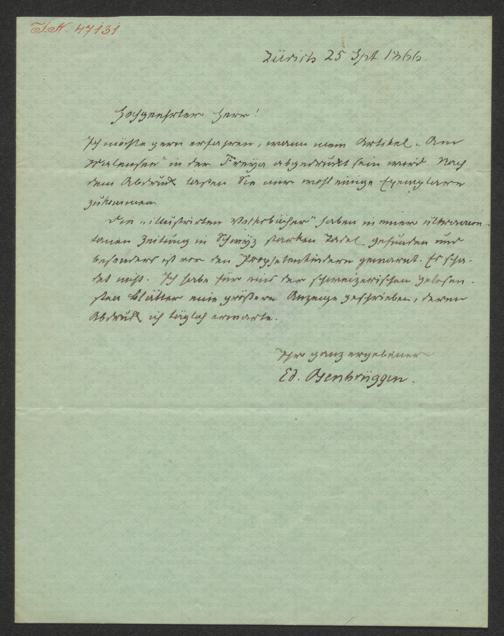 I.N. 47131
Zürich 25 Spt 1866
Hochgeehrter Herr!
Ich möchte gern erfahren, wann mein Artikel „Am
Walensee" in der Freya abgedruckt sein wird. Nach
dem Abdruck lassen Sie mir wohl einige Exemplare
zukommen.
Die „illustrirten Volksbücher" haben in einer ultramon-
tanen Zeitung in Schwyz starken Tadel gefunden und
besonders ist vor den gewarnt. Es scha-
det nicht. Ich habe für eins der schweizerischen gelesen-
sten Blätter eine größere Anzeige geschrieben, deren
Abdruck ich täglich erwarte.
Ihr ganz ergebener
Ed. Osenbrüggen.